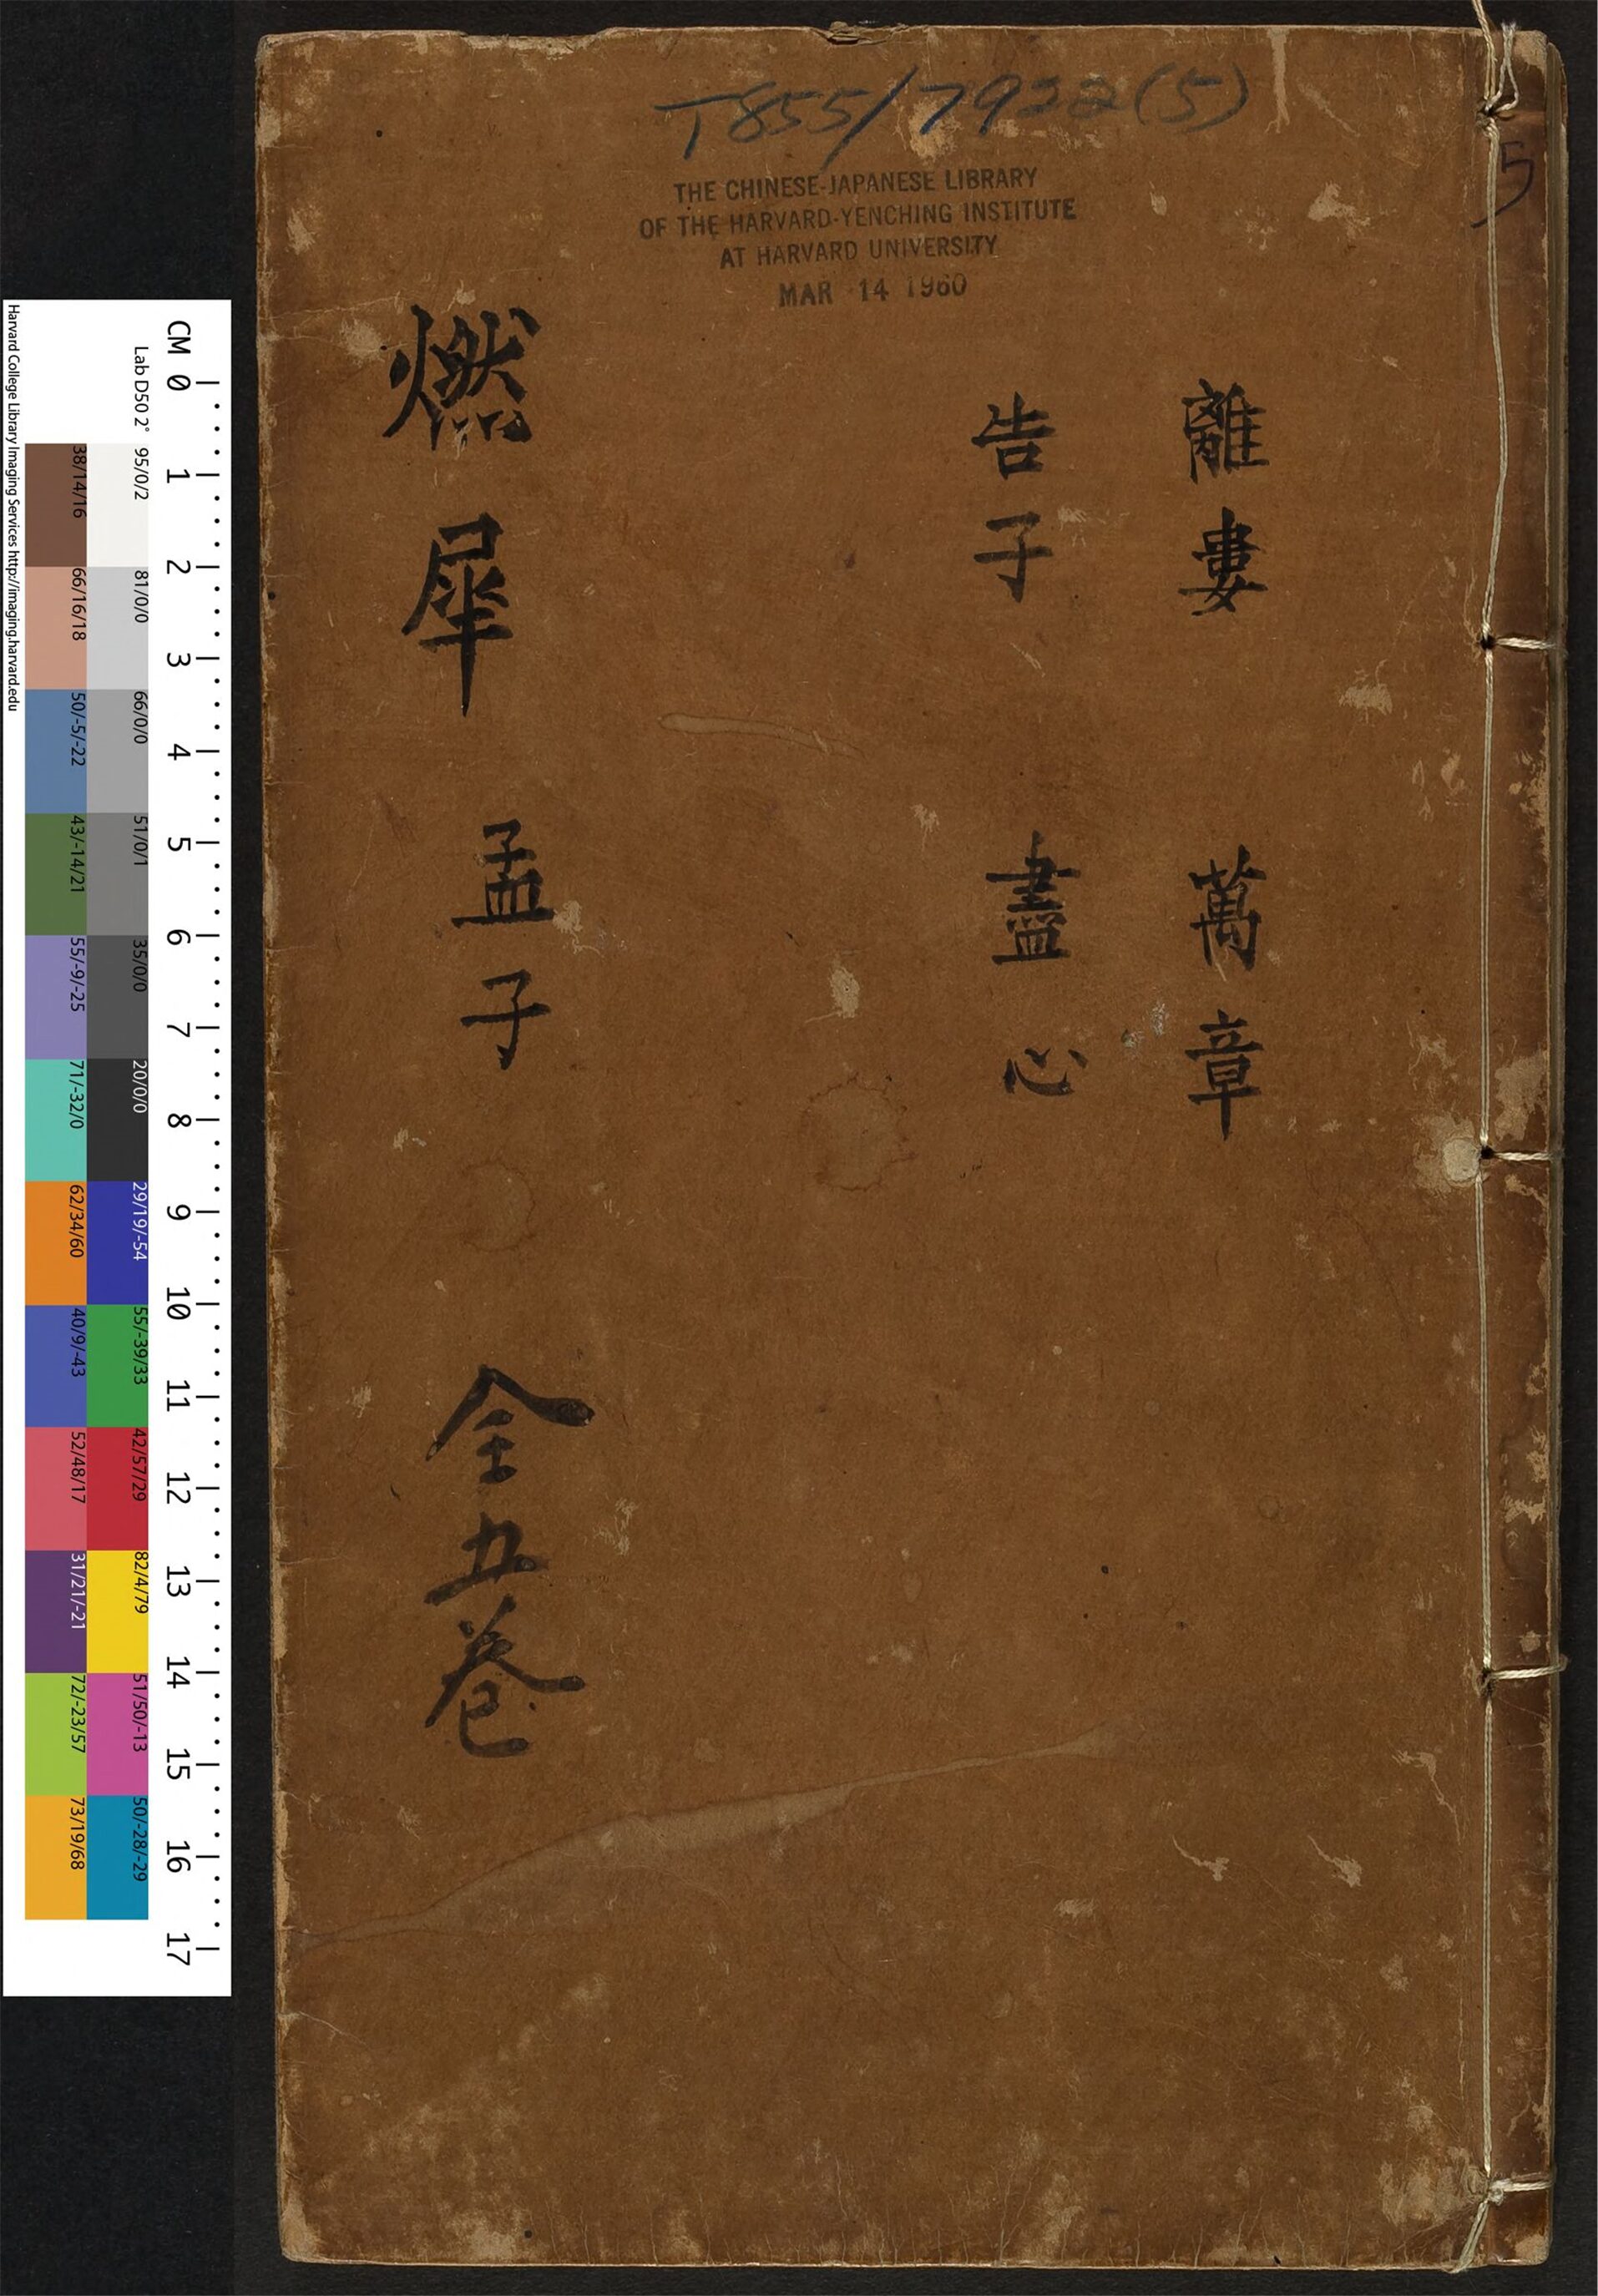 T855/7922(5)
THE CHINESE-JAPANESE LIBRARY
OF THE HARVARD-YENCHING INSTITUTE
AT HARVARD UNIVERSITY
MAR 14 1960
5
離婁 萬章
告子 盡心
燃犀 孟子 全五卷
CM 0 1 2 3 4 5 6 7 8 9 10 11 12 13 14 15 16 17
Lab D50 2° 95/0/2 81/0/0 66/0/0 51/0/1 35/0/0 20/0/0 29/19/-54 55/-39/33 42/57/29 82/4/79 51/50/-13 50/-28/-29
38/14/16 66/16/18 50/-5/-22 43/-14/21 55/-9/-25 71/-32/0 62/34/60 40/9/-43 52/48/17 31/21/-21 72/-23/57 73/19/68
Harvard College Library Imaging Services http://imaging.harvard.edu